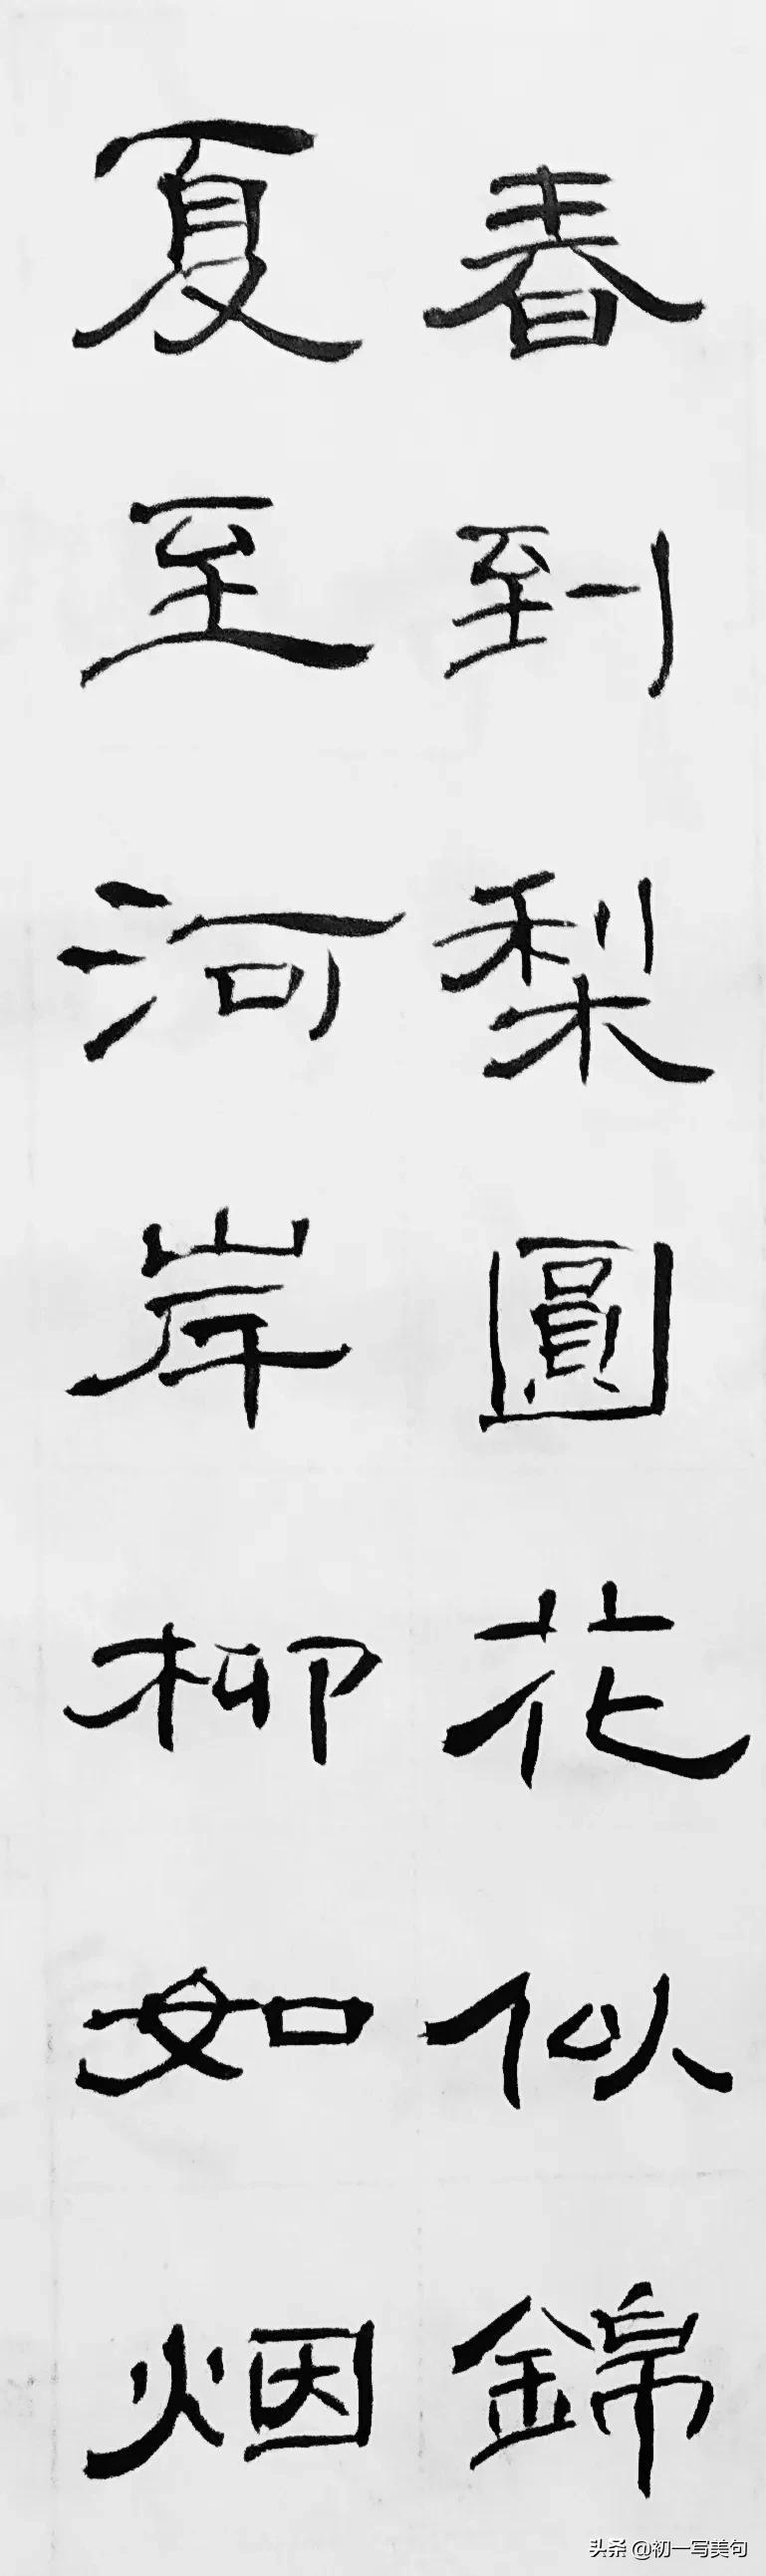 春到梨圓花似錦
夏至河岸柳如烟
头条 @初一写美句